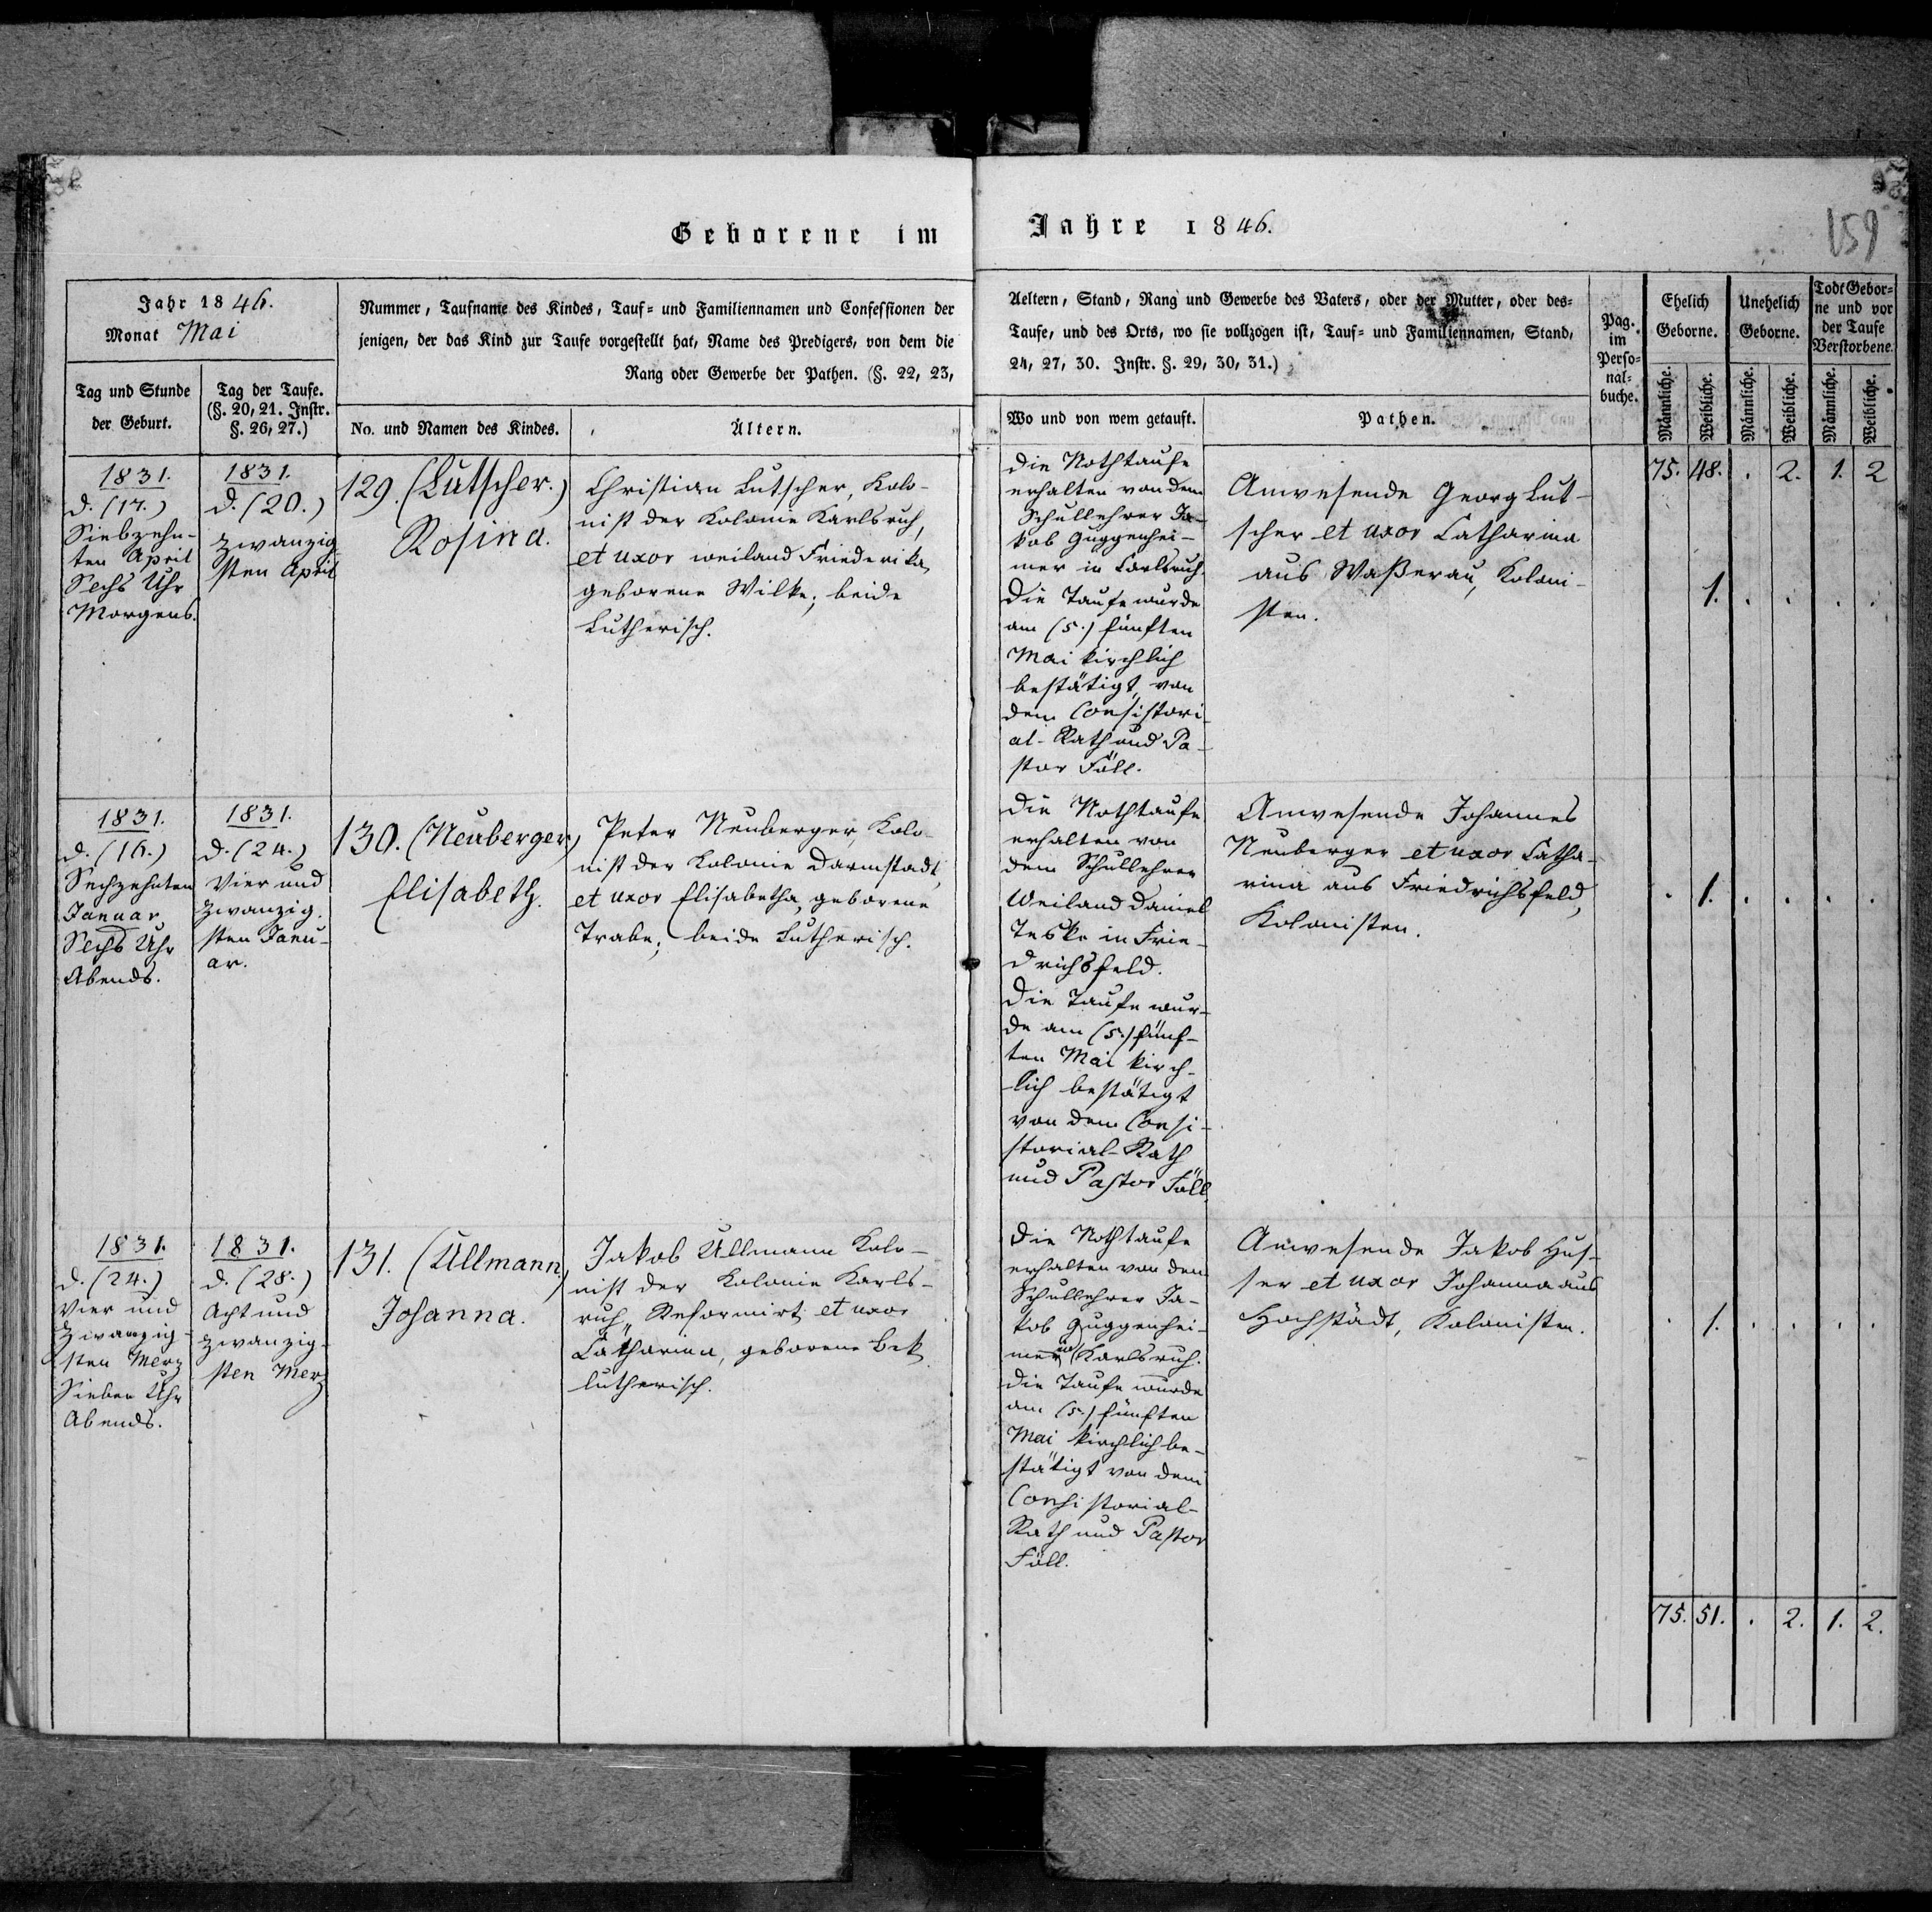 Geborene im Jahre 1846.
159
Jahr 1846.
Monat Mai
Tag und Stunde
der Geburt.
Tag der Taufe.
(§. 20, 21. Instr.
§. 26, 27.)
Nummer, Taufname des Kindes, Tauf- und Familiennamen und Confessionen der
jenigen, der das Kind zur Taufe vorgestellt hat, Name des Predigers, von dem die
Rang oder Gewerbe der Pathen. (§. 22, 23,
No. und Namen des Kindes.
Ältern.
Aeltern, Stand, Rang und Gewerbe des Vaters, oder der Mutter, oder des-
Taufe, und des Orts, wo sie vollzogen ist, Tauf- und Familiennamen, Stand,
24, 27, 30. Instr. §. 29, 30, 31.)
Wo und von wem getauft.
Pathen.
Pag.
im
Perso-
nal-
buche.
Ehelich
Geborne.
Unehelich
Geborne.
Todt Gebor-
ne und vor
der Taufe
Verstorbene.
Männliche.
Weibliche.
Männliche.
Weibliche.
Männliche.
Weibliche.
1831.
d. (17.)
Siebzehn-
ten April
Sechs Uhr
Morgens.
1831.
d. (20.)
zwanzig
sten April
129. (Lutscher.)
Rosina.
Christian Lutscher, Kolo-
nist der Kolonie Karlsruh,
et uxor weiland Friederika,
geborene Wilke; beide
Lutherisch.
Die Nothtaufe
erhalten von dem
Schullehrer Ja-
kob Guggenhei-
mer in Carlsruh.
Die Taufe wurde
am (5.) fünften
Mai kirchlich
bestätigt, von
dem Consistori-
al-Rath und Pa-
stor Föll.
Anwesende Georg Lut-
scher et uxor Catharina
aus Waßerau, Koloni-
sten.
75. 48. . 2. 1. 2
1. . . . .
1831.
d. (16.)
Sechzehnten
Januar
Sechs Uhr
Abends.
1831.
d. (24.)
Vier und
zwanzig.
sten Janu-
ar.
130. (Neuberger,)
Elisabeth.
Peter Neuberger, Kolo-
nist der Kolonie Darmstadt,
et uxor Elisabetha, geborene
Trabe; beide Lutherisch.
Die Nothtaufe
erhalten von
dem Schullehrer
Weiland Daniel
Teske in Frie-
drichsfeld.
Die Taufe wur-
de am (5.) fünf-
ten Mai kirch-
lich bestätigt
von dem Consi-
storial-Rath
und Pastor Föll
Anwesende Johannes
Neuberger et uxor Catha-
rina aus Friedrichsfeld,
Kolonisten.
. 1. . . . .
1831.
d. (24.)
Vier und
zwanzig-
sten Merz
Sieben Uhr
Abends.
1831.
d. (28.)
Acht und
zwanzig-
sten Merz
131. (Ullmann.)
Johanna.
Jakob Ullmann Kolo-
nist der Kolonie Karls-
ruh, Reformirt; et uxor
Catharina, geborene Bek
lutherisch.
Die Nothtaufe
erhalten von dem
Schullehrer Ja-
kob Guggenhei-
mer in Karlsruh.
Die Taufe wurde
am (5.) fünften
Mai kirchlich be-
stätigt von dem
Consistorial-
Rath und Pastor
Föll.
Anwesende Jakob Hus-
ser et uxor Johanna aus
Hochstädt, Kolonisten.
. 1. . . . .
75. 51. . 2. 1. 2.